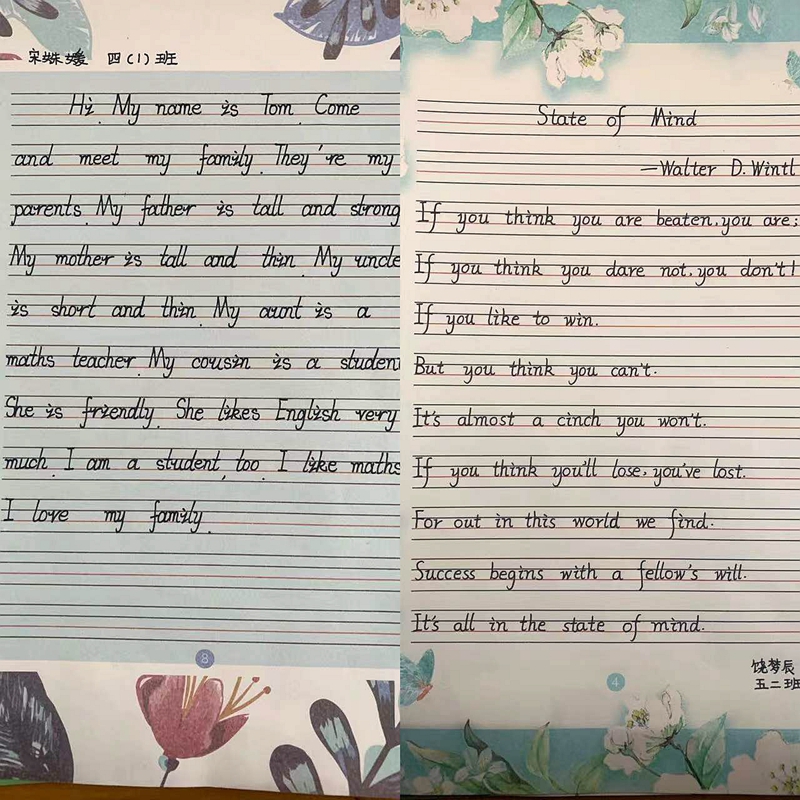 宋姝媛 四(1)班
Hi. My name is Tom. Come
and meet my family. They're my
parents. My father is tall and strong
My mother is tall and thin. My uncle
is short and thin. My aunt is a
maths teacher. My cousin is a studen
She is friendly. She likes English very
much. I am a student, too. I like maths
I love my family.
8
State of Mind
—Walter D. Wintl
If you think you are beaten, you are;
If you think you dare not, you don't!
If you like to win.
But you think you can't.
It's almost a cinch you won't.
If you think you'll lose, you've lost.
For out in this world we find.
Success begins with a fellow's will.
It's all in the state of mind.
饶梦辰
五二班
4